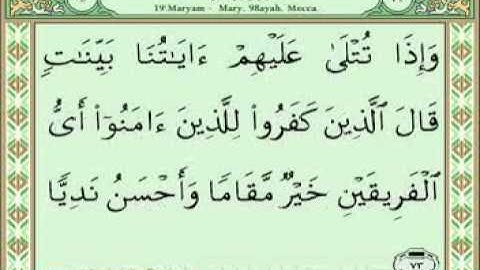 19:Maryam - Mary. 98ayah. Mecca.
وَإِذَا تُتْلَىٰ عَلَيْهِمْ ءَايَـٰتُنَا بَيِّنَـٰتٍ
قَالَ ٱلَّذِينَ كَفَرُوا۟ لِلَّذِينَ ءَامَنُوٓا۟ أَىُّ
ٱلْفَرِيقَيْنِ خَيْرٌ مَّقَامًا وَأَحْسَنُ نَدِيًّا
٧٣